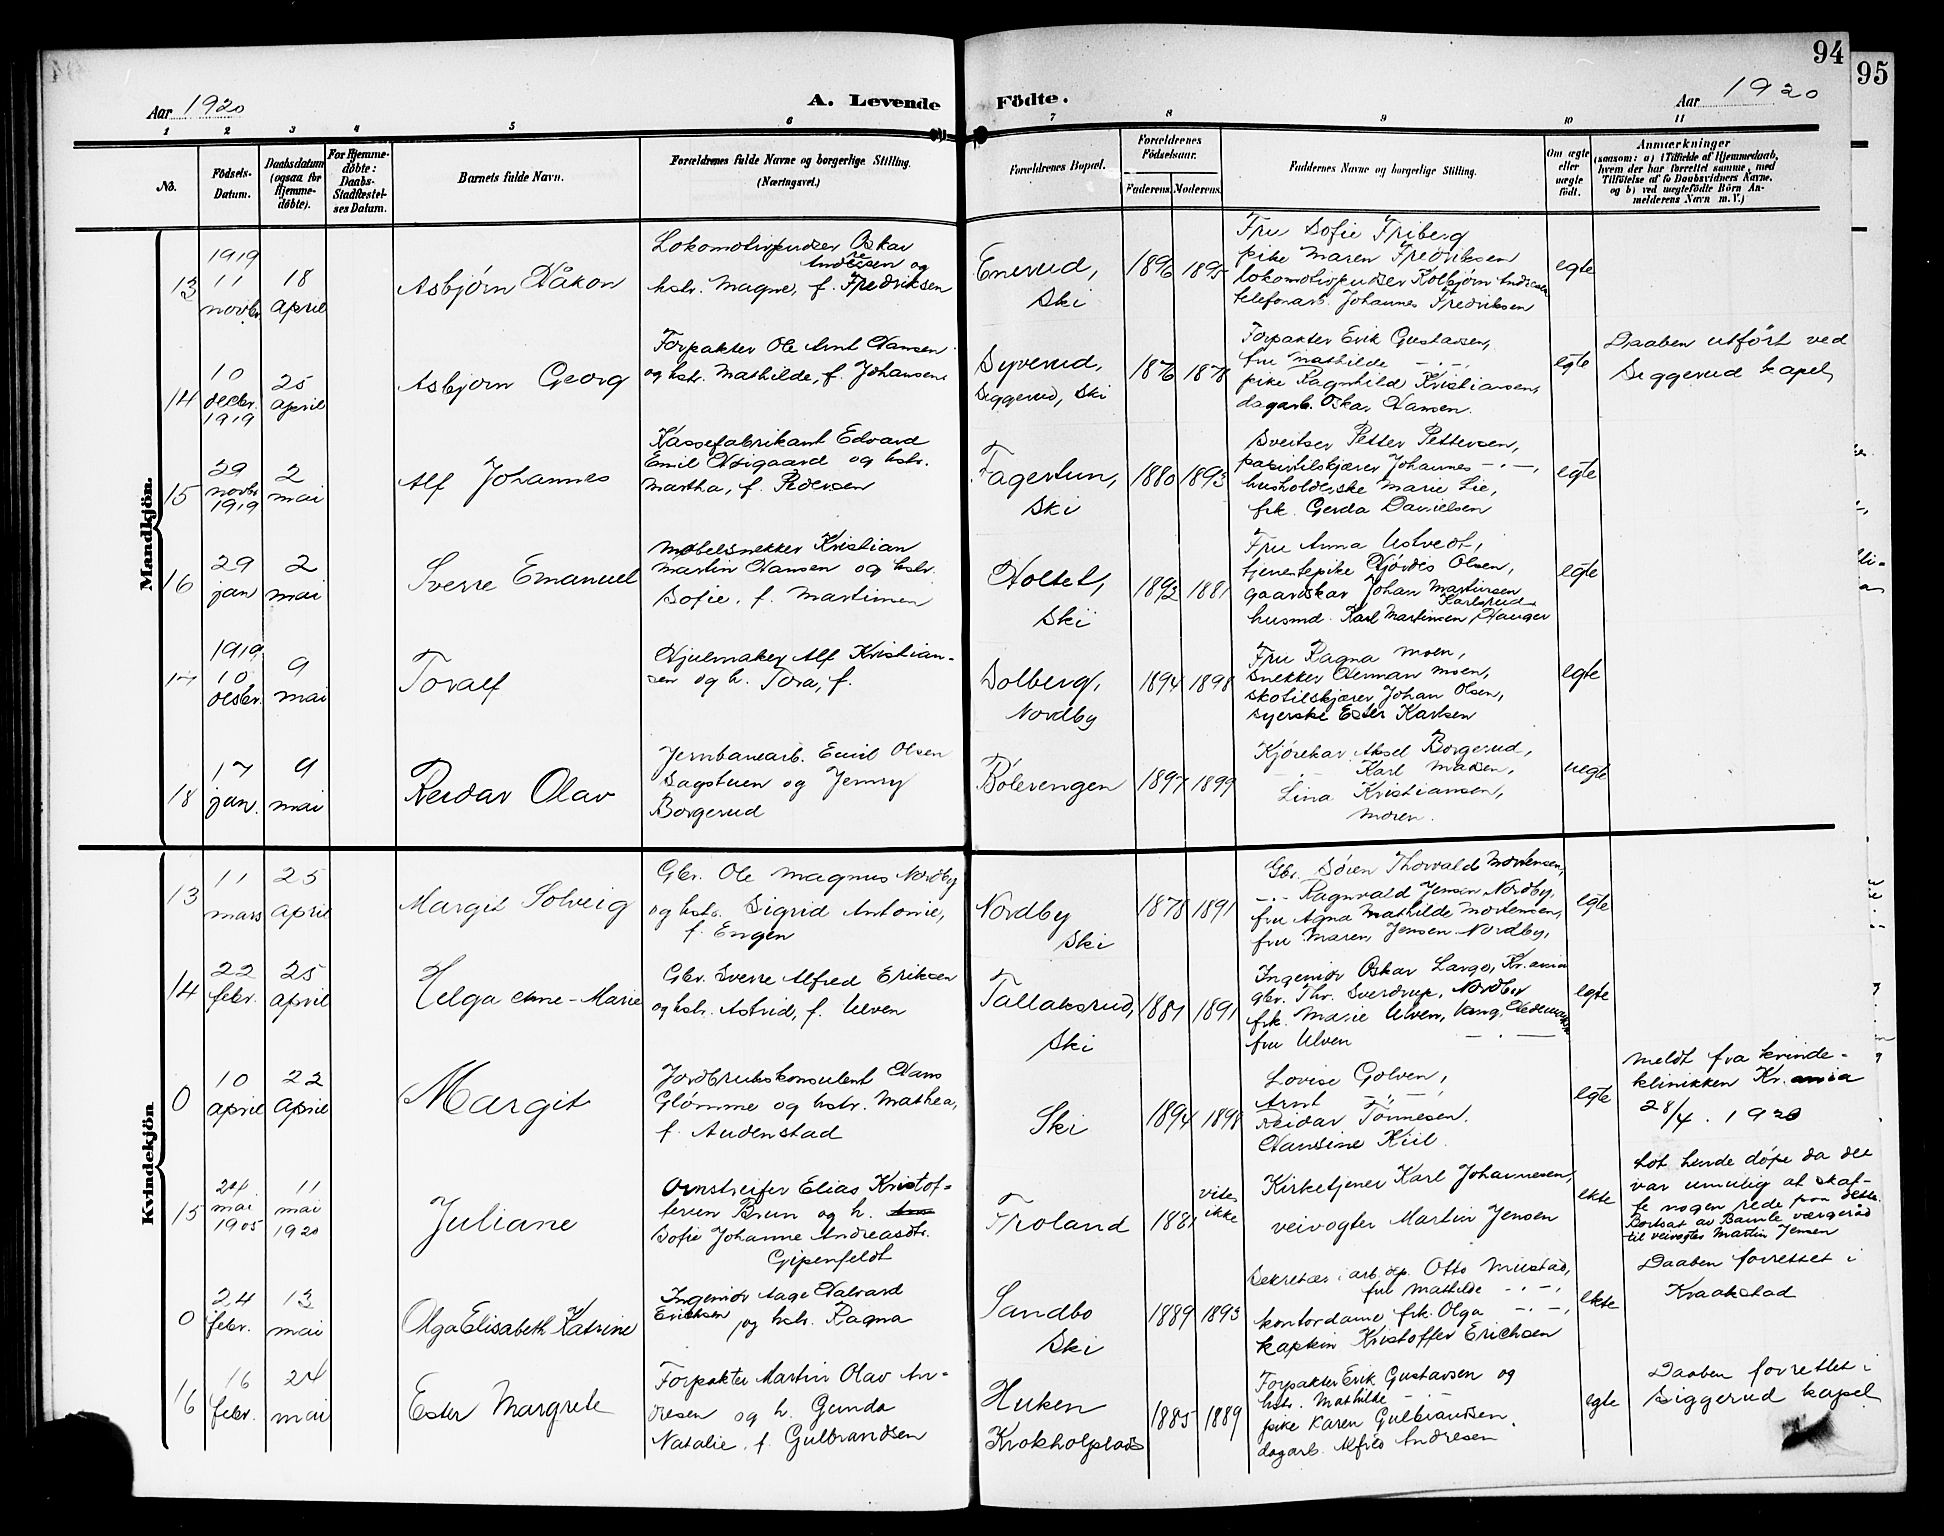 94
95
Aar 1920
A. Levende Födte.
Aar 1920
1 2 3 4 5 6 7 8 9 10 11
No.
Födsels-Datum.
Daabsdatum (ogsaa for Hjemme-døbte).
For Hjemme-døbte: Daabs-Stadfæstel-ses Datum.
Barnets fulde Navn.
Forældrenes fulde Navne og borgerlige Stilling. (Næringsvei.)
Forældrenes Bopæl.
Forældrenes Födselsaar.
Faderens. Moderens.
Faddernes Navne og borgerlige Stilling.
Om ægte eller uægte födt.
Anmærkninger
(saasom: a) i Tilfælde af Hjemmedaab, hvem der har forrettet samme, med Tilföielse af to Daabsvidners Navne, og b) ved uægtefödte Börn An-melderens Navn m. V.)
Mandkjön.
13
1919
11 novbr.
18 april
Asbjörn Håkon
Lokomotivpudser Oskar
Andresen og
hstr. Magne, f. Fredriksen
Enerud,
Ski
1896 1895
Fru Sofie Friberg
pike Maren Fredriksen
lokomotivpudser Kolbjörn Andresen
telefonarb. Johannes Fredriksen
egte
14
10 decbr. 1919
25 april
Asbjørn Georg
Forpakter Ole Arnt Hansen
og hstr. Mathilde, f. Johansen
Syverud,
Siggerud, Ski
1876 1878
Forpakter Erik Gustavsen,
fru Mathilde -"-,
pike Ragnhild Kristiansen,
dagarb. Oskar Hansen.
egte
Daaben utført ved
Siggerud kapel
15
29 novbr. 1919
2 mai
Alf Johannes
Kassefabrikant Edvard
Emil Höigaard og hstr.
Martha, f. Pedersen
Fagertun,
Ski
1880 1893
Sveitser Petter Pettersen,
papirtilskjærer Johannes -"-,
husholderske Marie Lie,
frk. Gerda Danielsen
egte
16
29 jan
2 mai
Sverre Emanuel
Møbelsnekker Kristian
Martin Hansen og hstr.
Sofie, f. Martinsen
Holtet,
Ski
1892 1881
Fru Anna Ustvedt,
tjenestepike Hjørdis Olsen,
gaardskar Johan Martinsen
Karlsrud
husmd. Karl Martinsen, Hauger
egte
17
1919
10 desbr.
9 mai
Toralf
Hjulmaker Alf Kristian-
sen og h. Tora, f.
Solberg,
Nordby
1894 1898
Fru Ragna Moen,
snekker Herman Moen,
skotilskjærer Johan Olsen,
syerske Ester Karlsen
egte
18
17 jan.
9 mai
Reidar Olav
Jernbanearb. Emil Olsen
Sagstuen og Jenny
Borgerud
Bölerengen
1897 1899
Kjörekar Aksel Borgerud,
-"- Karl Madsen,
Lina Kristiansen,
moren.
uegte
Kvindekjön
13
11 mars
25 april
Margit Solveig
Gbr. Ole Magnus Nordby
og hstr. Sigrid Antonie,
f. Engen
Nordby
Ski
1878 1891
Gbr. Sören Thorvald Mortensen,
-"- Ragnvald Jensen Nordby,
fru Agna Mathilde Mortensen,
fru Maren Jensen Nordby,
egte
14
22 febr.
25 april
Helga Anne-Marie
Gbr. Sverre Alfred Eriksen
og hstr. Astrid, f. Ulven
Tallaksrud,
Ski
1881 1891
Ingeniör Oskar Lange, Kr.ania
gbr. Thr. Sverdrup, Nordby
frk. Marie Ulven, Vang, Hedemarken
fru Ulven -"-
egte
0
10 april
22 april
Margit
Jordbrukskonsulent Hans
Glömme og hstr. Mathea,
f. Audenstad
Ski
1894 1898
Lovise Golven,
Arnt -"-,
Reidar Tönnesen.
Hansine Kiil.
egte
Meldt fra kvinde-
klinikken Kr.ania
28/4. 1920
15
24 mai 1905
11 mai 1920
Juliane
Omstreifer Elias Kristof-
fersen Brun og h.
Sofie Johanne Andreasdtr.
Gipenfeldt
Froland
1881 vites ikke
Kirketjener Karl Johannesen,
veivogter Martin Jensen
ekte
Lot hende døpe da det
var umulig at skaf-
fe nogen rede paa dette.
Bortsat av Bamle værgeråd
til veivogter Martin Jensen
0
24 febr.
13 mai
Olga Elisabeth Katrine
Ingeniör Aage Halvard
Erichsen og hstr. Ragna
Sandbo
Ski
1889 1893
Sekretær i arb.dep. Otto Mustad,
fru Mathilde -"-,
kontordame frk. Olga -"-,
kaptein Kristoffer Erichsen
ekte
Daaben forrettet i
Kraakstad
16
16 febr.
24 mai
Ester Margrete
Forpakter Martin Olav An-
dresen og h. Gunda
Natalie, f. Gulbrandsen
Huken
Krokholplads
1885 1889
Forpakter Erik Gustavsen og
hstr. Mathilde -"-
pike Karen Gulbrandsen.
dagarb. Alfred Andresen
egte
Daaben forrettet i
Siggerud kapel